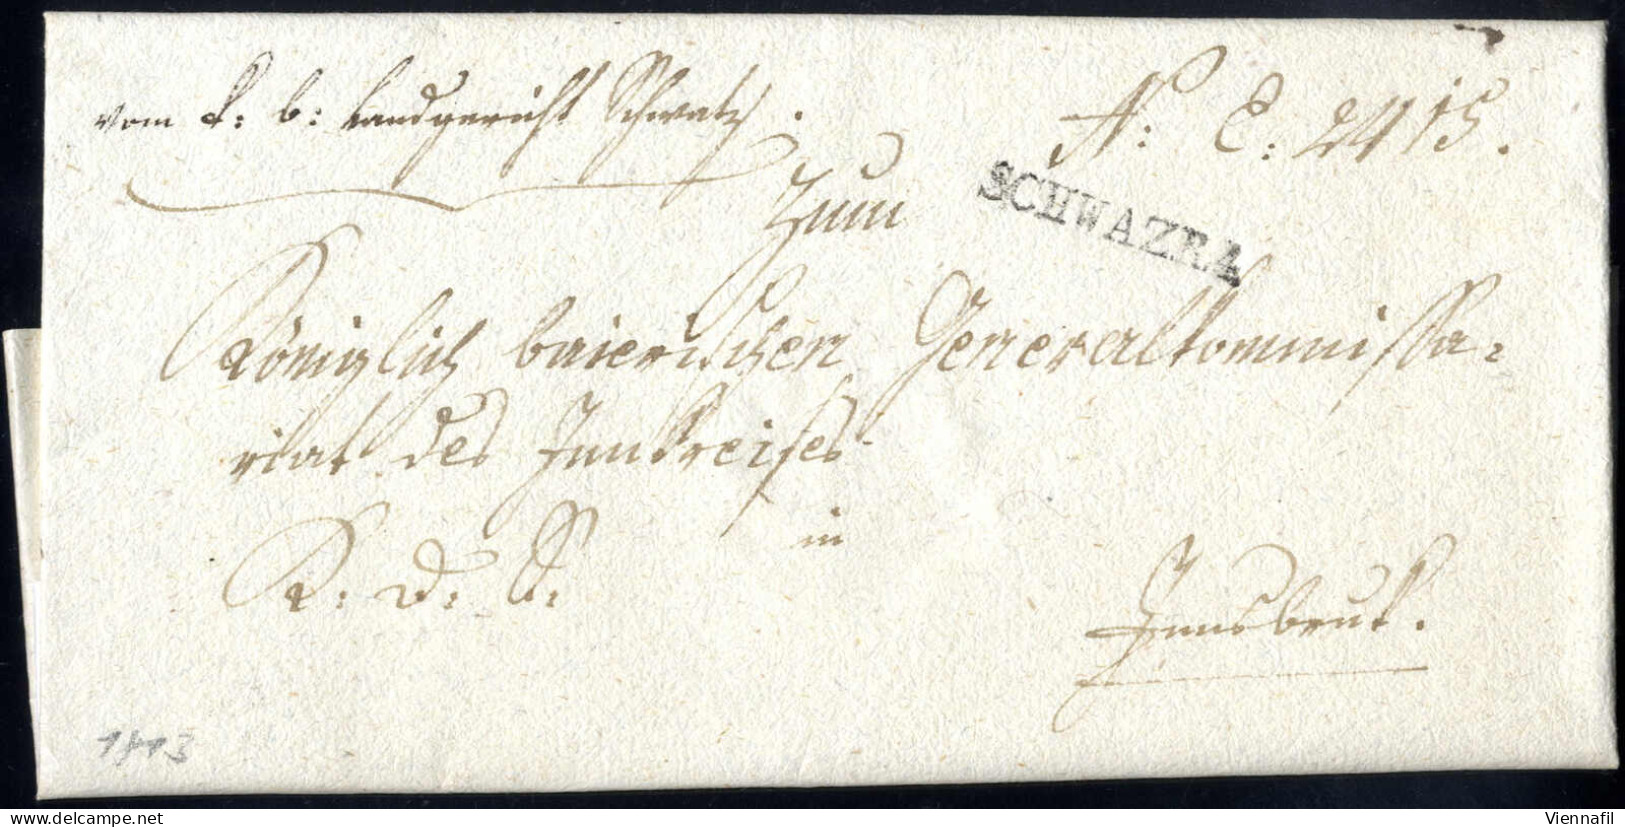 vom k: b: Landgericht Schwatz.
N: E: 2415.
SCHWAZR4
Zum
Königlich baierischen Generalkommissa=
riat des Innkreises
K: d: I:
in
Innsbruk.
1813
Viennafil